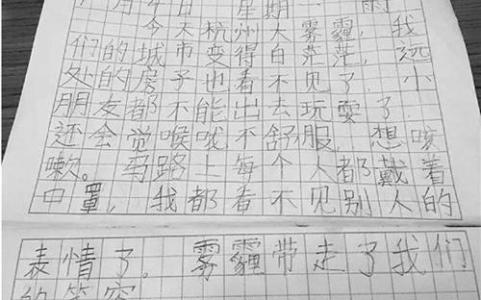 月 日 星期一 雨
今天杭州大雾霾,我
们的城市变得白茫茫,远
处的房子也看不见了,小
朋友都不能出去玩耍了,
还会觉喉咙不舒服,想咳
嗽。马路上每个人都戴着
口罩,我都看不见别人的
表情了。雾霾带走了我们
的笑容